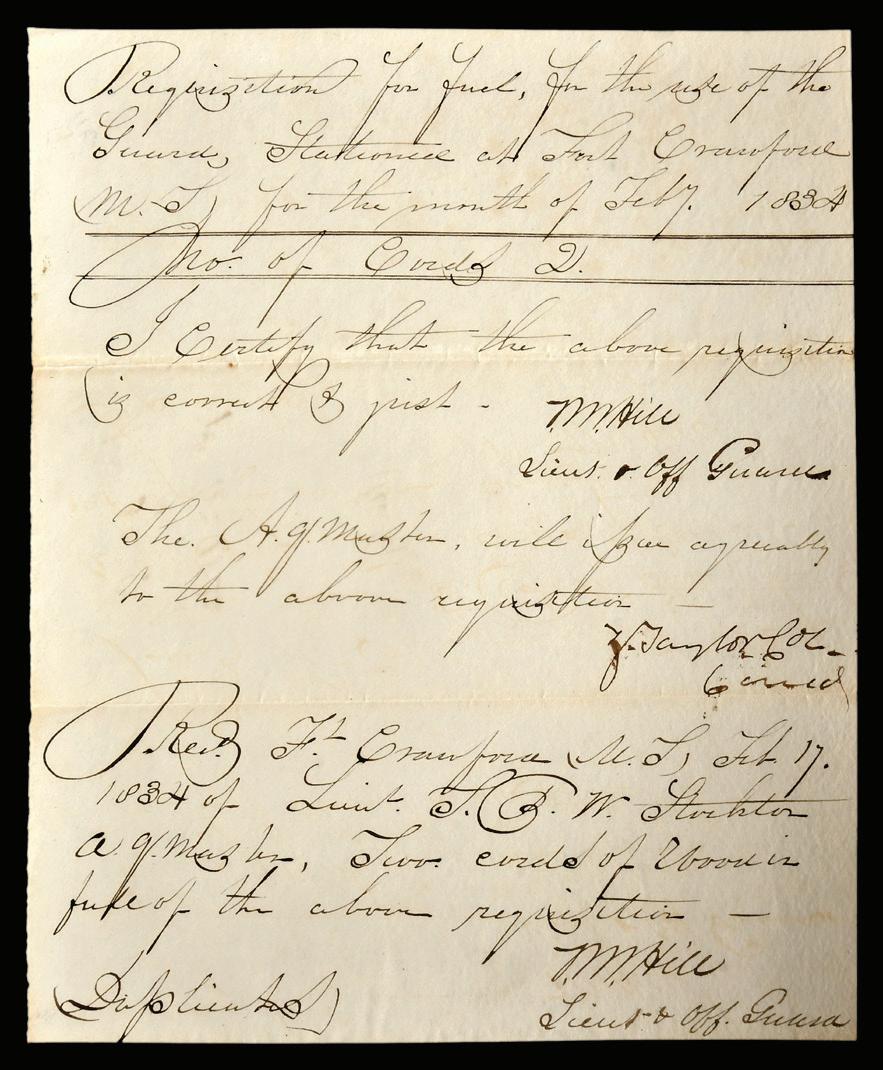 Requisition for fuel, for the use of the
Guard, Stationed at Fort Crawford
(M.T.) for the month of Feby. 1834
No. of Cords 2.
I Certify that the above requisition
is correct & just -
T.M. Hill
Lieut. & Off Guard
The A.Q. Master, will issue agreeably
to the above requisition —
Z. Taylor Col.
Comd
Recd. Ft. Crawford (M.T.) Feb. 17.
1834 of Lieut. T.B.W. Stockton
A.Q. Master, Two cords of Wood in
full of the above requisition —
T.M. Hill
(Duplicates)
Lieut & Off. Guard